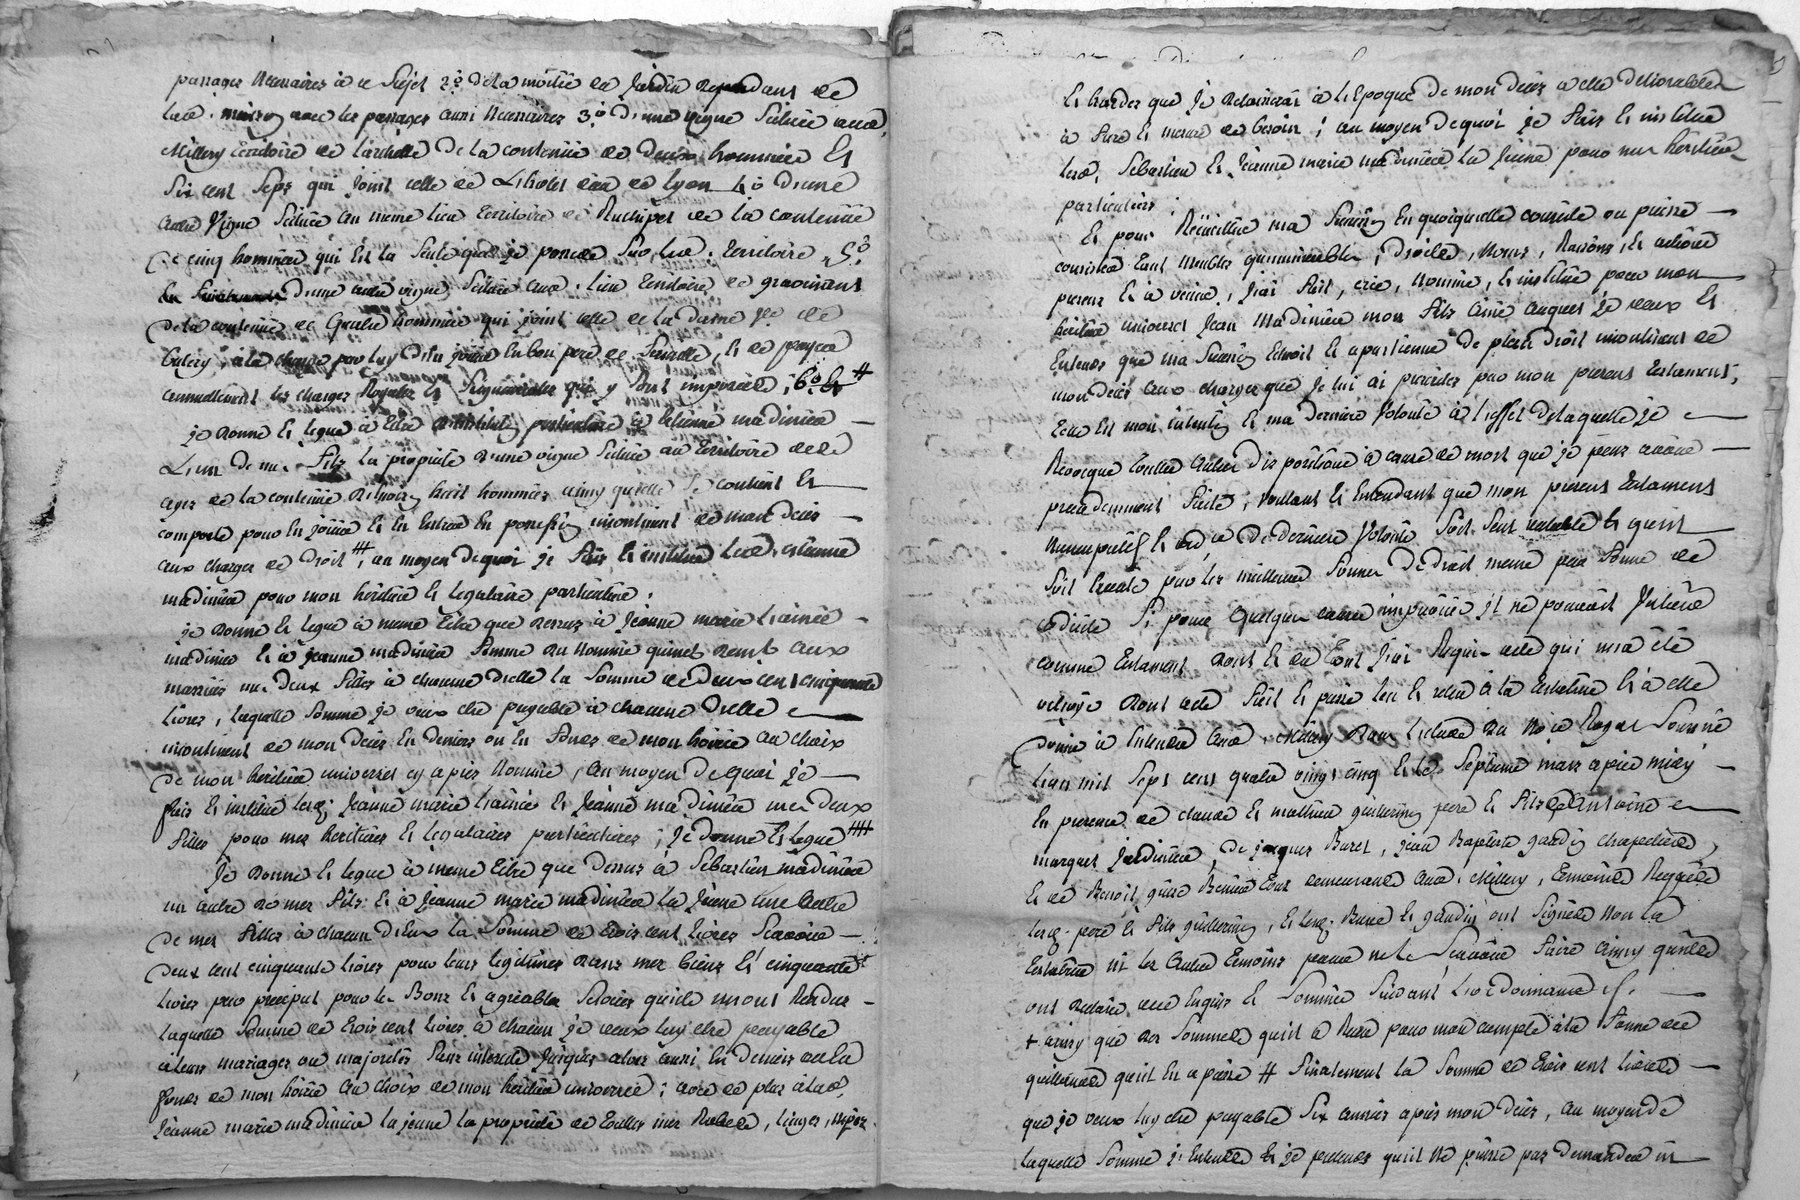 passages necessaires à ce sujet 2.º de la moitié du jardin dependant de
lad. maison avec les passages aussi necessaires 3.º d'une vigne scituée aud.
Millery territoire de la de la contenüe de deux hommées et
six cent seps qui joint celle de L'hotel dieu de Lyon 4.º d'une
autre vigne scituée au meme lieu territoire de de la contenüe
de cinq hommées qui est la seule que je possede sur led. territoire 5.º
d'une autre vigne scituée aud. lieu territoire de gravinant
de la contenüe de quatre hommées qui joint celle de la dame de
à la charge par luy d'en joüir en bon pere de famille, et de payer
annuellement les charges Royales et Seigneuriales qui y sont imposées; 6.º
je donne et legue à titre particulier à Estienne madinier
L'un de mes fils la propriété d'une vigne scituée au territoire de
de la contenüe d'environ huit hommées ainsy qu'elle se contient et
comporte pour en joüir et en entrer en possession incontinent de mon decès
aux charges de droit, au moyen de quoi je fais et institue led. estienne
madinier pour mon héritier et legataire particulier.
je donne et legue à meme titre que dessus à Jeanne marie L'ainée
madinier et à jeanne madinier femme du nommé quinet aux
mes deux filles à chacune d'elle la somme de deux cent cinquante
livres, laquelle somme je veux être payable à chacune d'elle
incontinent de mon decès en deniers ou en fonds de mon hoirie au choix
de mon héritier universel cy après nommé, au moyen de quoi je
fais et institue lesd. Jeanne marie L'ainée et Jeanne madinier mes deux
filles pour mes heritieres et legataires particulieres; je donne et legue
Je donne et legue à meme titre que dessus à Sébastien madinier
un autre de mes fils et à Jeanne marie madinier La Jeune une autre
de mes filles à chacun d'Eux la somme de trois cent livres sçavoir
deux cent cinquante livres pour leurs legitimes dans mes biens et cinquante
livres par preciput pour les bons et agréables services qu'ils m'ont rendus
laquelle somme de trois cent livres à chacun je veux leur être payable
à leurs mariages ou majorités sans interêts jusques alors aussi en deniers ou en
fonds de mon hoirie au choix de mon héritier universel; de plus à lad.
Jeanne marie madinier la jeune la propriété de toutes mes Robes, linges, nipes
Et hardes que je delaisserai à L'Epoque de mon decès a elle
à fure et mesure de besoin; au moyen de quoi je fais et institue
lesd. Sébastien et Jeanne marie madinier La Jeune pour mes héritiers
particuliers.
Et pour Recueillir ma succession en quoi qu'elle consiste ou puisse
consister tant meubles qu'immeubles, droits, noms, Raisons, et actions
presents et à venir, J'ai fait, créé, nommé, et institué pour mon
héritier universel Jean Madinier mon fils ainé auquel je veux et
Entends que ma succession Echoit et apartienne de plein droit incontinent de
mon decès aux charges que je lui ai prescrites par mon present Testament,
telle est mon intention et ma derniere Volonté à l'effet de laquelle je
Revocque toutes autres dispositions à cause de mort que je peux avoir
precedemment faites, voulant et Entendant que mon present testament
nuncupatif et ord.re de derniere Volonté soit seul valable et qu'il
soit Executé par les meilleures formes de droit meme par forme de
codicile si pour quelque cause imprevüe il ne pouvoit Valoir
comme testament dont et du tout J'ai Requis acte qui m'a été
octroyé dont acte fait et passé leu et releu à la testatrice et à elle
donné à Entendre aud. Millery dans L'etude du No.re Royal soussigné
L'an mil sept cent quatre vingt cinq et le septieme mars après midy
En presence de claude et mathieu guillermin pere et fils de Antoine
marques jardinier, de jacques Buret, jean Baptiste gandin charpentier,
et de Benoit tous demeurants aud. Millery, temoins Requis
lesd. pere et fils guillermin, et lesd. Buret et gandin ont signés non la
testatrice ni les autres temoins pour ne le sçavoir faire ainsy qu'ils
ont declaré de ce Enquis et sommés suivant L'ordonnance
+ ainsy que des sommes qu'il a payé pour mon compte à la dame de
qu'il en a passé # finalement la somme de trois cent livres
que je veux luy être payable six années après mon decès, au moyen de
laquelle somme j'Entends et je pretends qu'il ne puisse pas demander ni